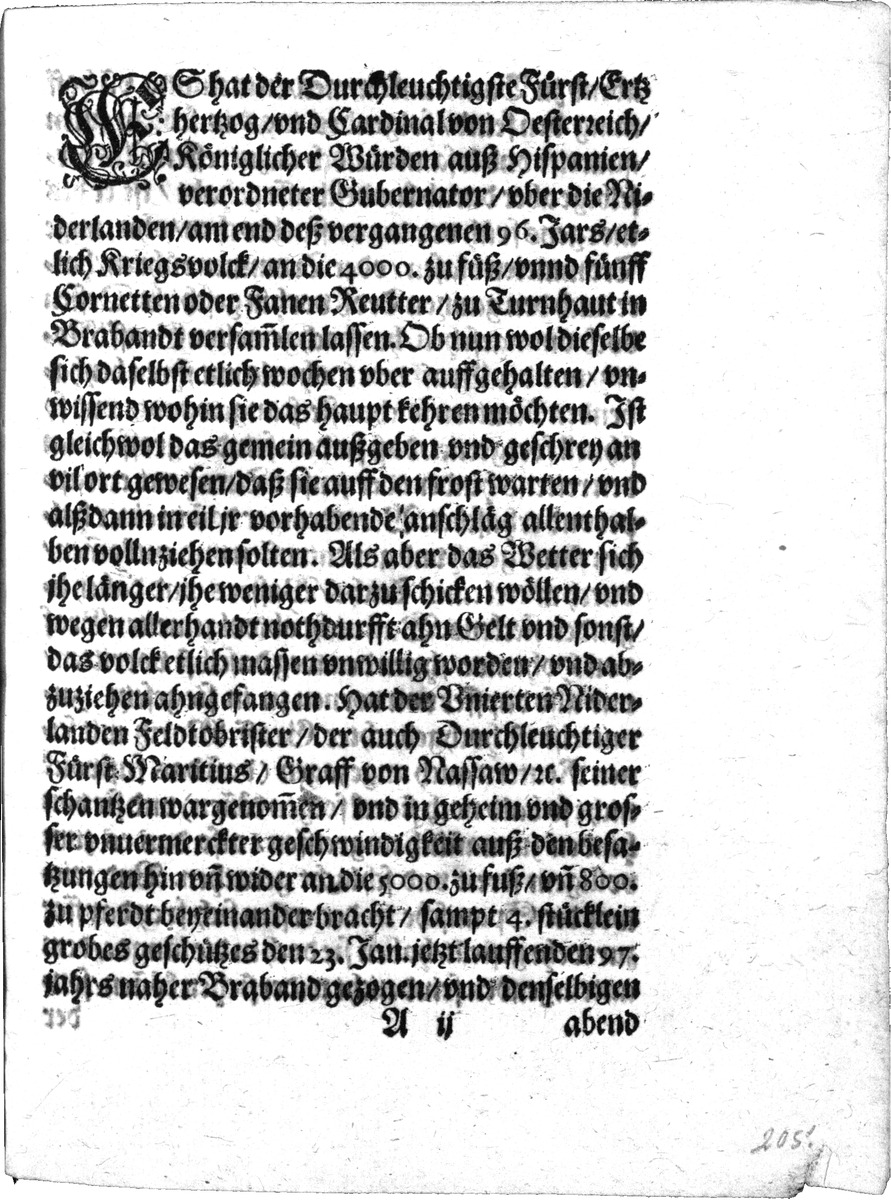 ES hat der Durchleuchtigste Fürst/Ertz
hertzog/vnd Cardinal von Oesterreich/
Königlicher Würden auß Hispanien/
verordneter Gubernator/vber die Ni-
derlanden/am end deß vergangenen 96. Jars/et-
lich Kriegsvolck/an die 4000. zu fuß/vnnd fünff
Cornetten oder Fanen Reutter/zu Turnhaut in
Brabandt versam̃len lassen. Ob nun wol dieselbe
sich daselbst etlich wochen vber auffgehalten/vn-
wissend wohin sie das haupt kehren möchten. Ist
gleichwol das gemein außgeben vnd geschrey an
vil ort gewesen/daß sie auff den frost warten/vnd
alßdann in eil jr vorhabende anschläg allenthal-
ben vollnziehen solten. Als aber das Wetter sich
jhe länger/jhe weniger darzu schicken wöllen/vnd
wegen allerhandt nothdurfft ahn Gelt vnd sonst/
das volck etlich massen vnwillig worden/vnd ab-
zuziehen ahngefangen. Hat der Vnierten Nider-
landen Feldtobrister/der auch Durchleuchtiger
Fürst Maritius/Graff von Nassaw/ꝛc. seiner
schantzen wargenom̃en/vnd in geheim vnd gros-
ser vnuermerckter geschwindigkeit auß den besa-
tzungen hin vñ wider an die 5000. zu fuß/vñ 800.
zu pferdt beyeinander bracht/sampt 4. stücklein
grobes geschützes den 23. Jan. jetzt lauffenden 97.
jahrs naher Braband gezogen/vnd denselbigen
A ij abend
205.